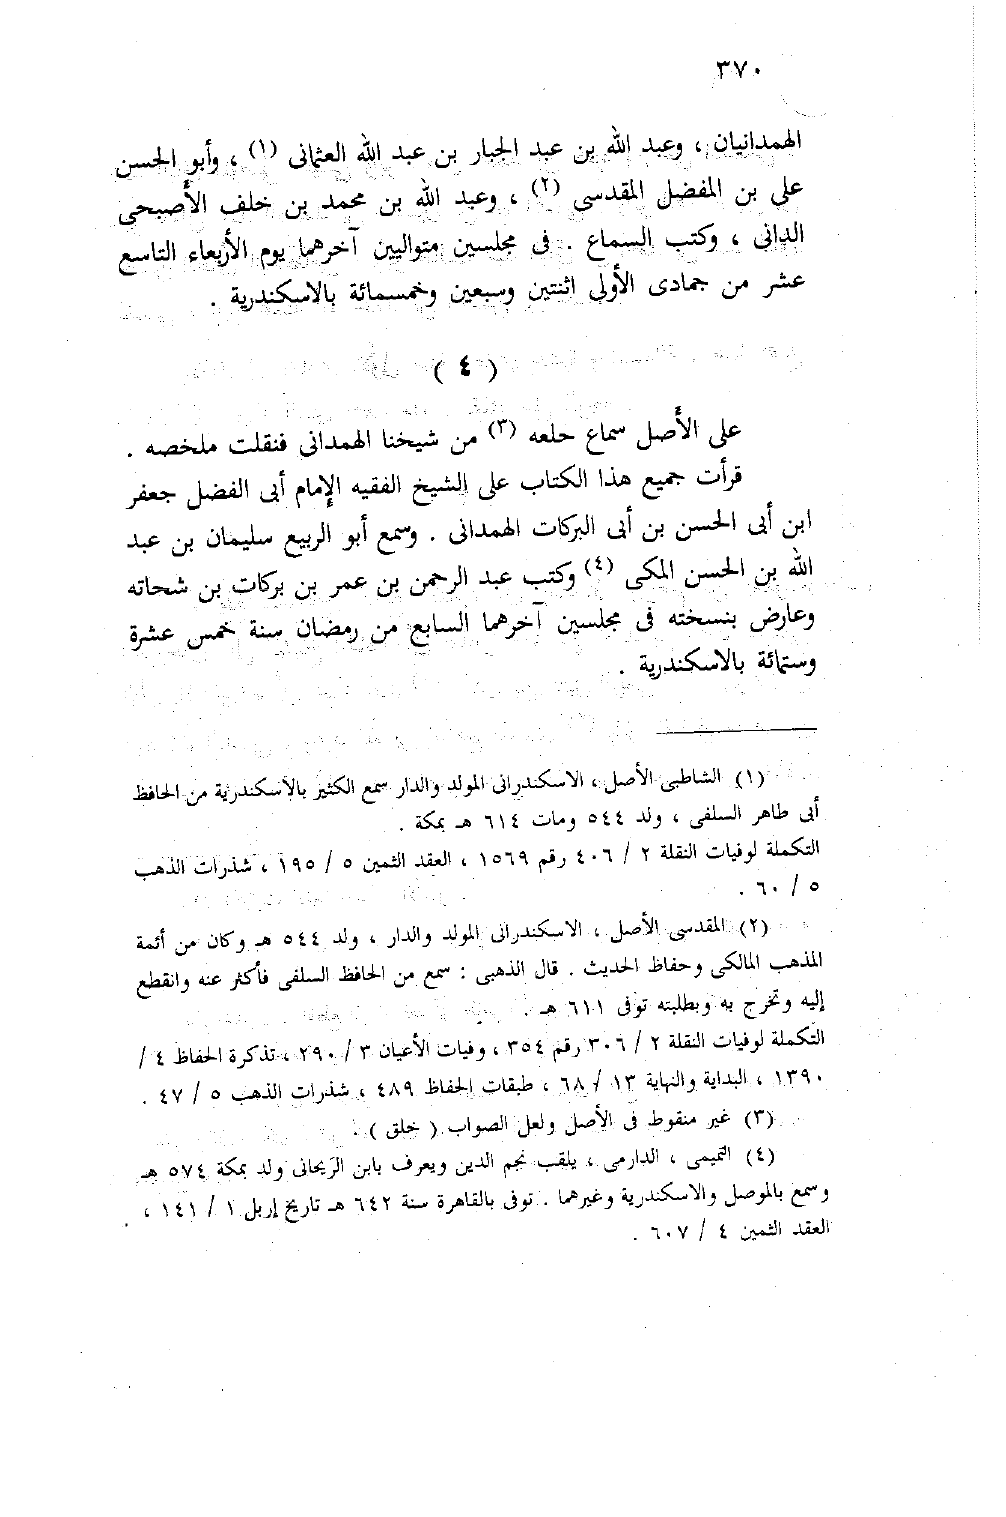 ٣٧٠
الهمدانيان ، وعبد الله بن عبد الجبار بن عبد الله العثمانى (١) ، وأبو الحسن
على بن المفضل المقدسى (٢) ، وعبد الله بن محمد بن خلف الأصبحى
الدانى ، وكتب السماع . فى مجلسين متواليين آخرهما يوم الأربعاء التاسع
عشر من جمادى الأولى اثنتين وسبعين وخمسمائة بالاسكندرية .
( ٤ )
على الأصل سماع حلعه (٣) من شيخنا الهمدانى فنقلت ملخصه .
قرأت جميع هذا الكتاب على الشيخ الفقيه الإمام أبى الفضل جعفر
ابن أبى الحسن بن أبى البركات الهمدانى . وسمع أبو الربيع سليمان بن عبد
الله بن الحسن المكى (٤) وكتب عبد الرحمن بن عمر بن بركات بن شحاته
وعارض بنسخته فى مجلسين آخرهما السابع من رمضان سنة خمس عشرة
وستمائة بالاسكندرية .
(١) الشاطبى الأصل ، الاسكندرانى المولد والدار سمع الكثير بالاسكندرية من الحافظ
أبى طاهر السلفى ، ولد ٥٤٤ ومات ٦١٤ هـ بمكة .
التكملة لوفيات النقلة ٢ / ٤٠٦ رقم ١٥٦٩ ، العقد الثمين ٥ / ١٩٥ ، شذرات الذهب
٥ / ٦٠ .
(٢) المقدسى الأصل ، الاسكندرانى المولد والدار ، ولد ٥٤٤ هـ وكان من أئمة
المذهب المالكى وحفاظ الحديث . قال الذهبى : سمع من الحافظ السلفى فأكثر عنه وانقطع
إليه وتخرج به وبطلبته توفى ٦١١ هـ .
التكملة لوفيات النقلة ٢ / ٣٠٦ رقم ٣٥٤ ، وفيات الأعيان ٣ / ٢٩٠ ، تذكرة الحفاظ ٤ /
١٣٩٠ ، البداية والنهاية ١٣ / ٦٨ ، طبقات الحفاظ ٤٨٩ ، شذرات الذهب ٥ / ٤٧ .
(٣) غير منقوط فى الأصل ولعل الصواب ( خلق ) .
(٤) التميمى ، الدارمى ، يلقب نجم الدين ويعرف بابن الريحانى ولد بمكة ٥٧٤ هـ
وسمع بالموصل والاسكندرية وغيرهما . توفى بالقاهرة سنة ٦٤٢ هـ تاريخ إربل ١ / ١٤١ ،
العقد الثمين ٤ / ٦٠٧ .